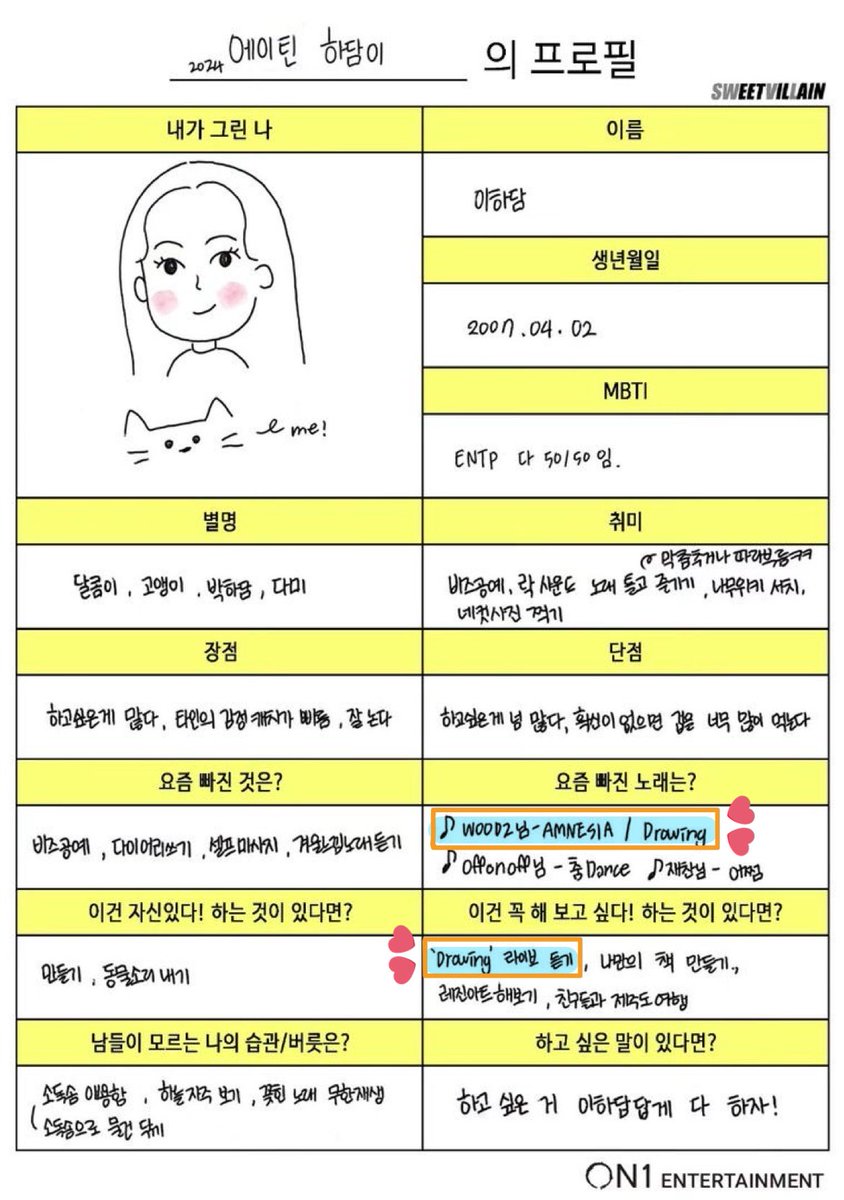 2024 에이틴 하담이 의 프로필
SWEETVILLAIN
내가 그린 나
me!
이름
이하담
생년월일
2007.04.02
MBTI
ENTP 다 50/50 임.
별명
달콤이, 고앵이, 박하담, 다미
취미
막춤추거나 따라부름ㅋㅋ
비즈공예, 락 사운드 노래 틀고 즐기기, 나무위키 서치,
네컷사진 찍기
장점
하고싶은게 많다, 타인의 감정 캐치가 빠름, 잘 논다
단점
하고싶은게 넘 많다, 확신이 없으면 겁을 너무 많이 먹는다
요즘 빠진 것은?
비즈공예, 다이어리쓰기, 셀프마사지, 겨울느낌노래듣기
요즘 빠진 노래는?
♪ WOODZ님-AMNESIA / Drowing
♪ Offonoff님 - 춤 Dance ♪ 재찬님 -
이건 자신있다! 하는 것이 있다면?
만들기, 동물소리 내기
이건 꼭 해 보고 싶다! 하는 것이 있다면?
'Drowing' 라이브 듣기, 나만의 책 만들기,
레진아트해보기, 친구들과 제주도여행
남들이 모르는 나의 습관/버릇은?
소독솜 애용함, 하늘자주 보기, 꽂힌 노래 무한재생
(소독솜으로 물건 닦기
하고 싶은 말이 있다면?
하고 싶은 거 이하담답게 다 하자!
ON1 ENTERTAINMENT